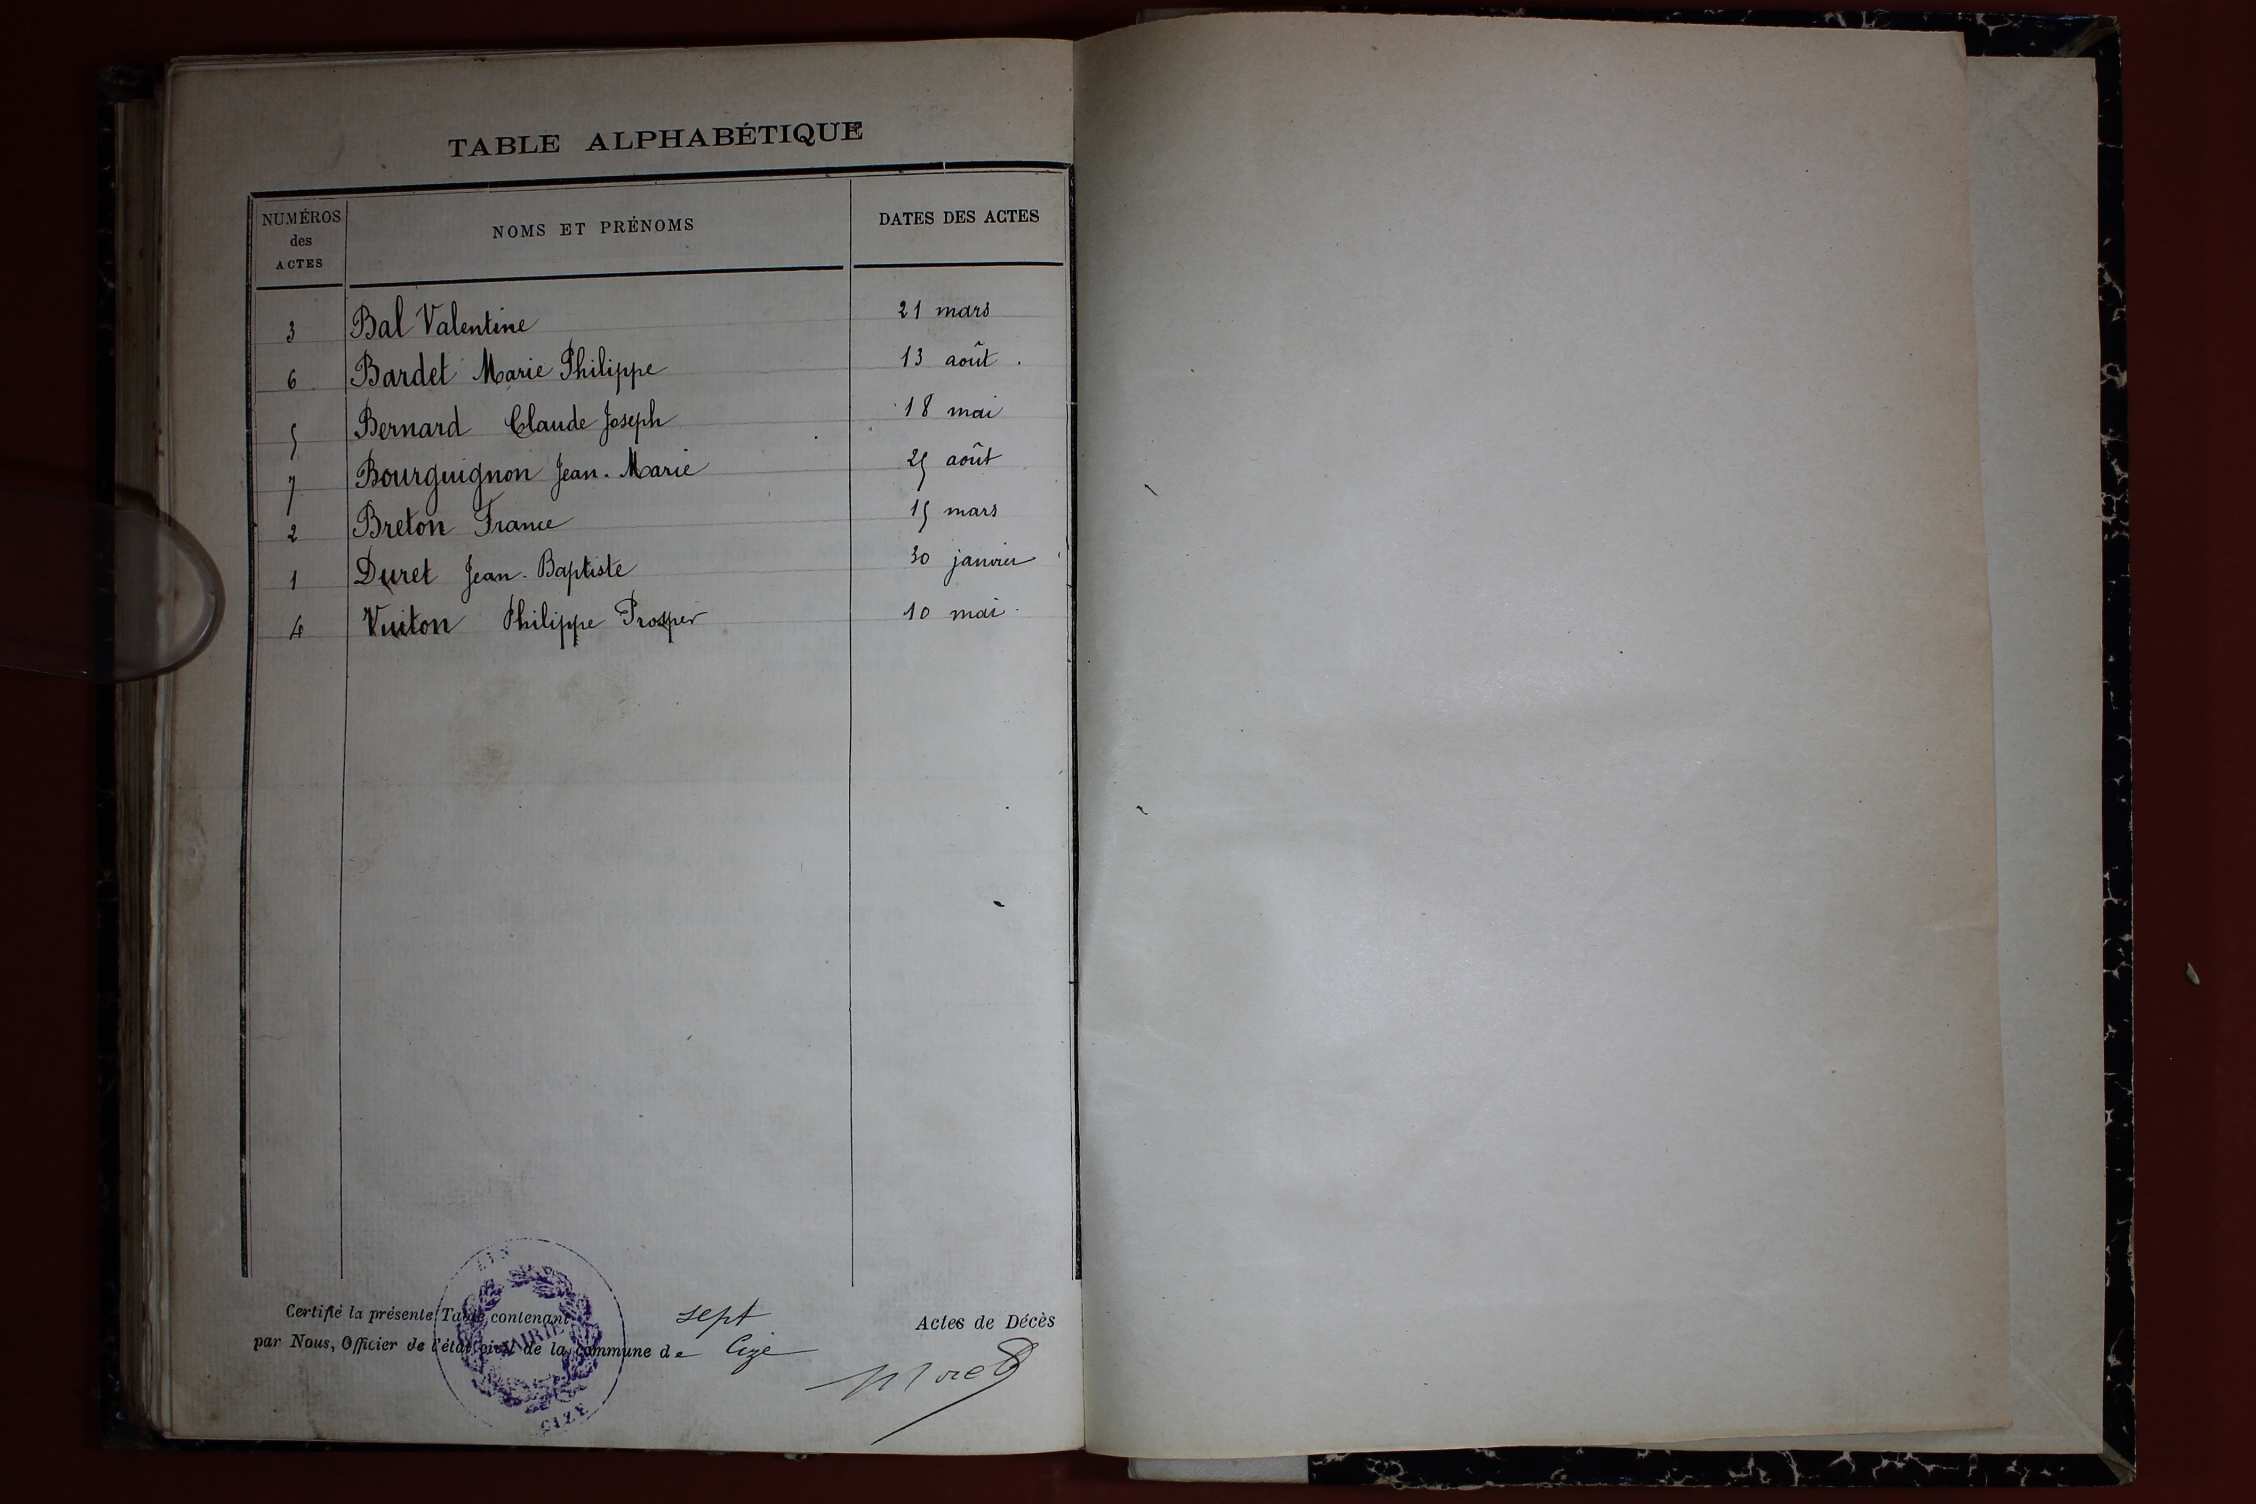 TABLE ALPHABÉTIQUE
NUMÉROS des ACTES NOMS ET PRÉNOMS DATES DES ACTES
3 Bal Valentine 21 mars
6 Bardet Marie Philippe 13 août
5 Bernard Claude Joseph 18 mai
7 Bourguignon Jean-Marie 25 août
2 Breton France 15 mars
1 Duret Jean-Baptiste 30 janvier
4 Vuiton Philippe Prosper 10 mai
Certifié la présente Table contenant sept Actes de Décès
par Nous, Officier de l'état civil de la commune de Cize
Morel
AIN
MAIRIE
CIZE